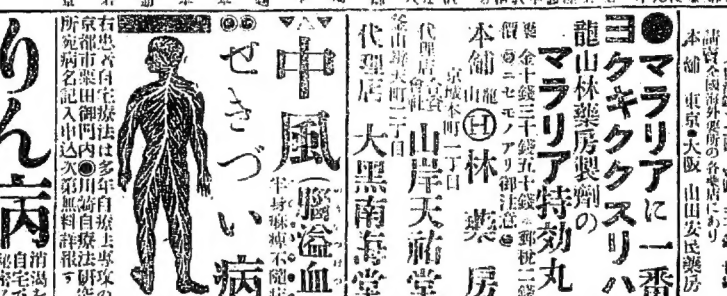 本舗 東京●大阪 山田安民藥房
●マラリアに一番
ヨクキククスリハ
龍山林藥房製劑の
マラリア特効丸
金十錢三十錢五十錢 郵税二錢
ニセモノアリ御注意
本舗 龍山 Ⓗ 林藥房
京城本町一丁目
代理店 山岸天祐堂
釜山辨天町二丁目
代理店 大黑南海堂
中風(腦溢血
半身麻痺不隨
せきづい病
右患者自宅療法は多年自療上專攻の
京都市粟田御門内●川崎自療法研究
所宛病名記入申込次第無料詳報す
りん病
消渇を
自宅で